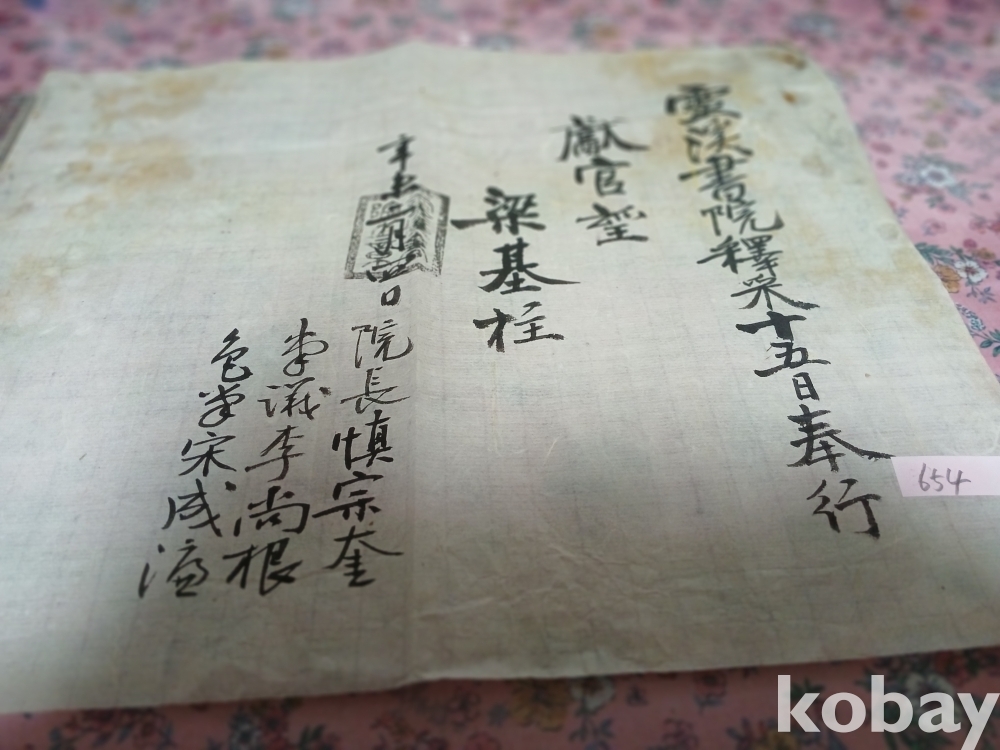 雲溪書院釋菜十五日奉行
獻官望
梁基柱
辛丑二月 日
院長愼宗奎
掌議李尚根
色掌宋成
654
kobay